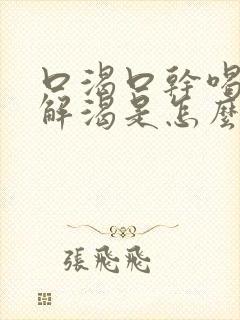 口渴口幹喝
解渴是怎麼
張飛飛